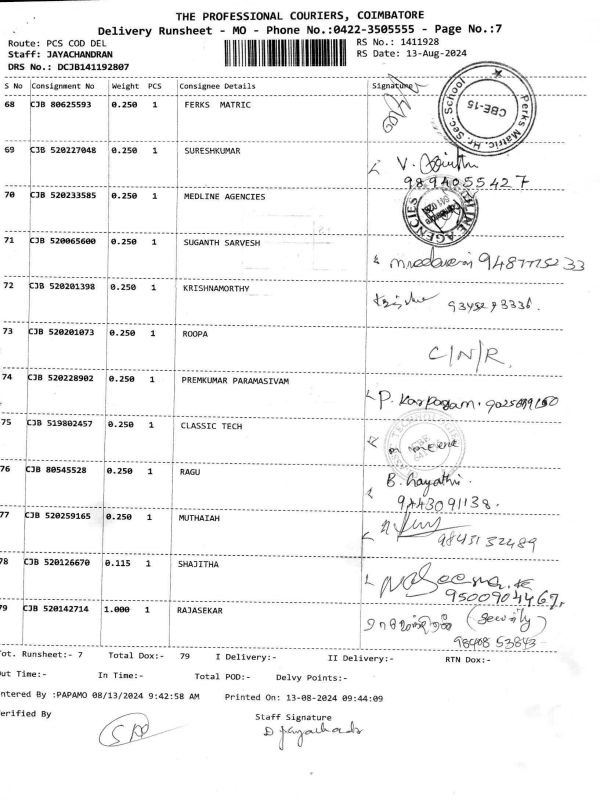 THE PROFESSIONAL COURIERS, COIMBATORE
Delivery Runsheet - MO - Phone No.:0422-3505555 - Page No.:7
Route: PCS COD DEL RS No.: 1411928
Staff: JAYACHANDRAN RS Date: 13-Aug-2024
DRS No.: DCJB141192807
S No Consignment No Weight PCS Consignee Details Signature
68 CJB 80625593 0.250 1 FERKS MATRIC
Perks Matric. Hr. Sec. School
CBE-15
69 CJB 520227048 0.250 1 SURESHKUMAR
V.
9894055427
70 CJB 520233585 0.250 1 MEDLINE AGENCIES
AGENCIES
71 CJB 520065600 0.250 1 SUGANTH SARVESH
72 CJB 520201398 0.250 1 KRISHNAMORTHY
73 CJB 520201073 0.250 1 ROOPA
C/N/R.
74 CJB 520228902 0.250 1 PREMKUMAR PARAMASIVAM
P. Karpagam.
75 CJB 519802457 0.250 1 CLASSIC TECH
76 CJB 80545528 0.250 1 RAGU
B. Gayathri.
9443091138.
77 CJB 520259165 0.250 1 MUTHAIAH
9843132489
78 CJB 520126670 0.115 1 SHAJITHA
9500904467.
79 CJB 520142714 1.000 1 RAJASEKAR
(Security)
98408 53843
Tot. Runsheet:- 7 Total Dox:- 79 I Delivery:- II Delivery:- RTN Dox:-
Out Time:- In Time:- Total POD:- Delvy Points:-
ntered By :PAPAMO 08/13/2024 9:42:58 AM Printed On: 13-08-2024 09:44:09
erified By Staff Signature
D Jayachandr